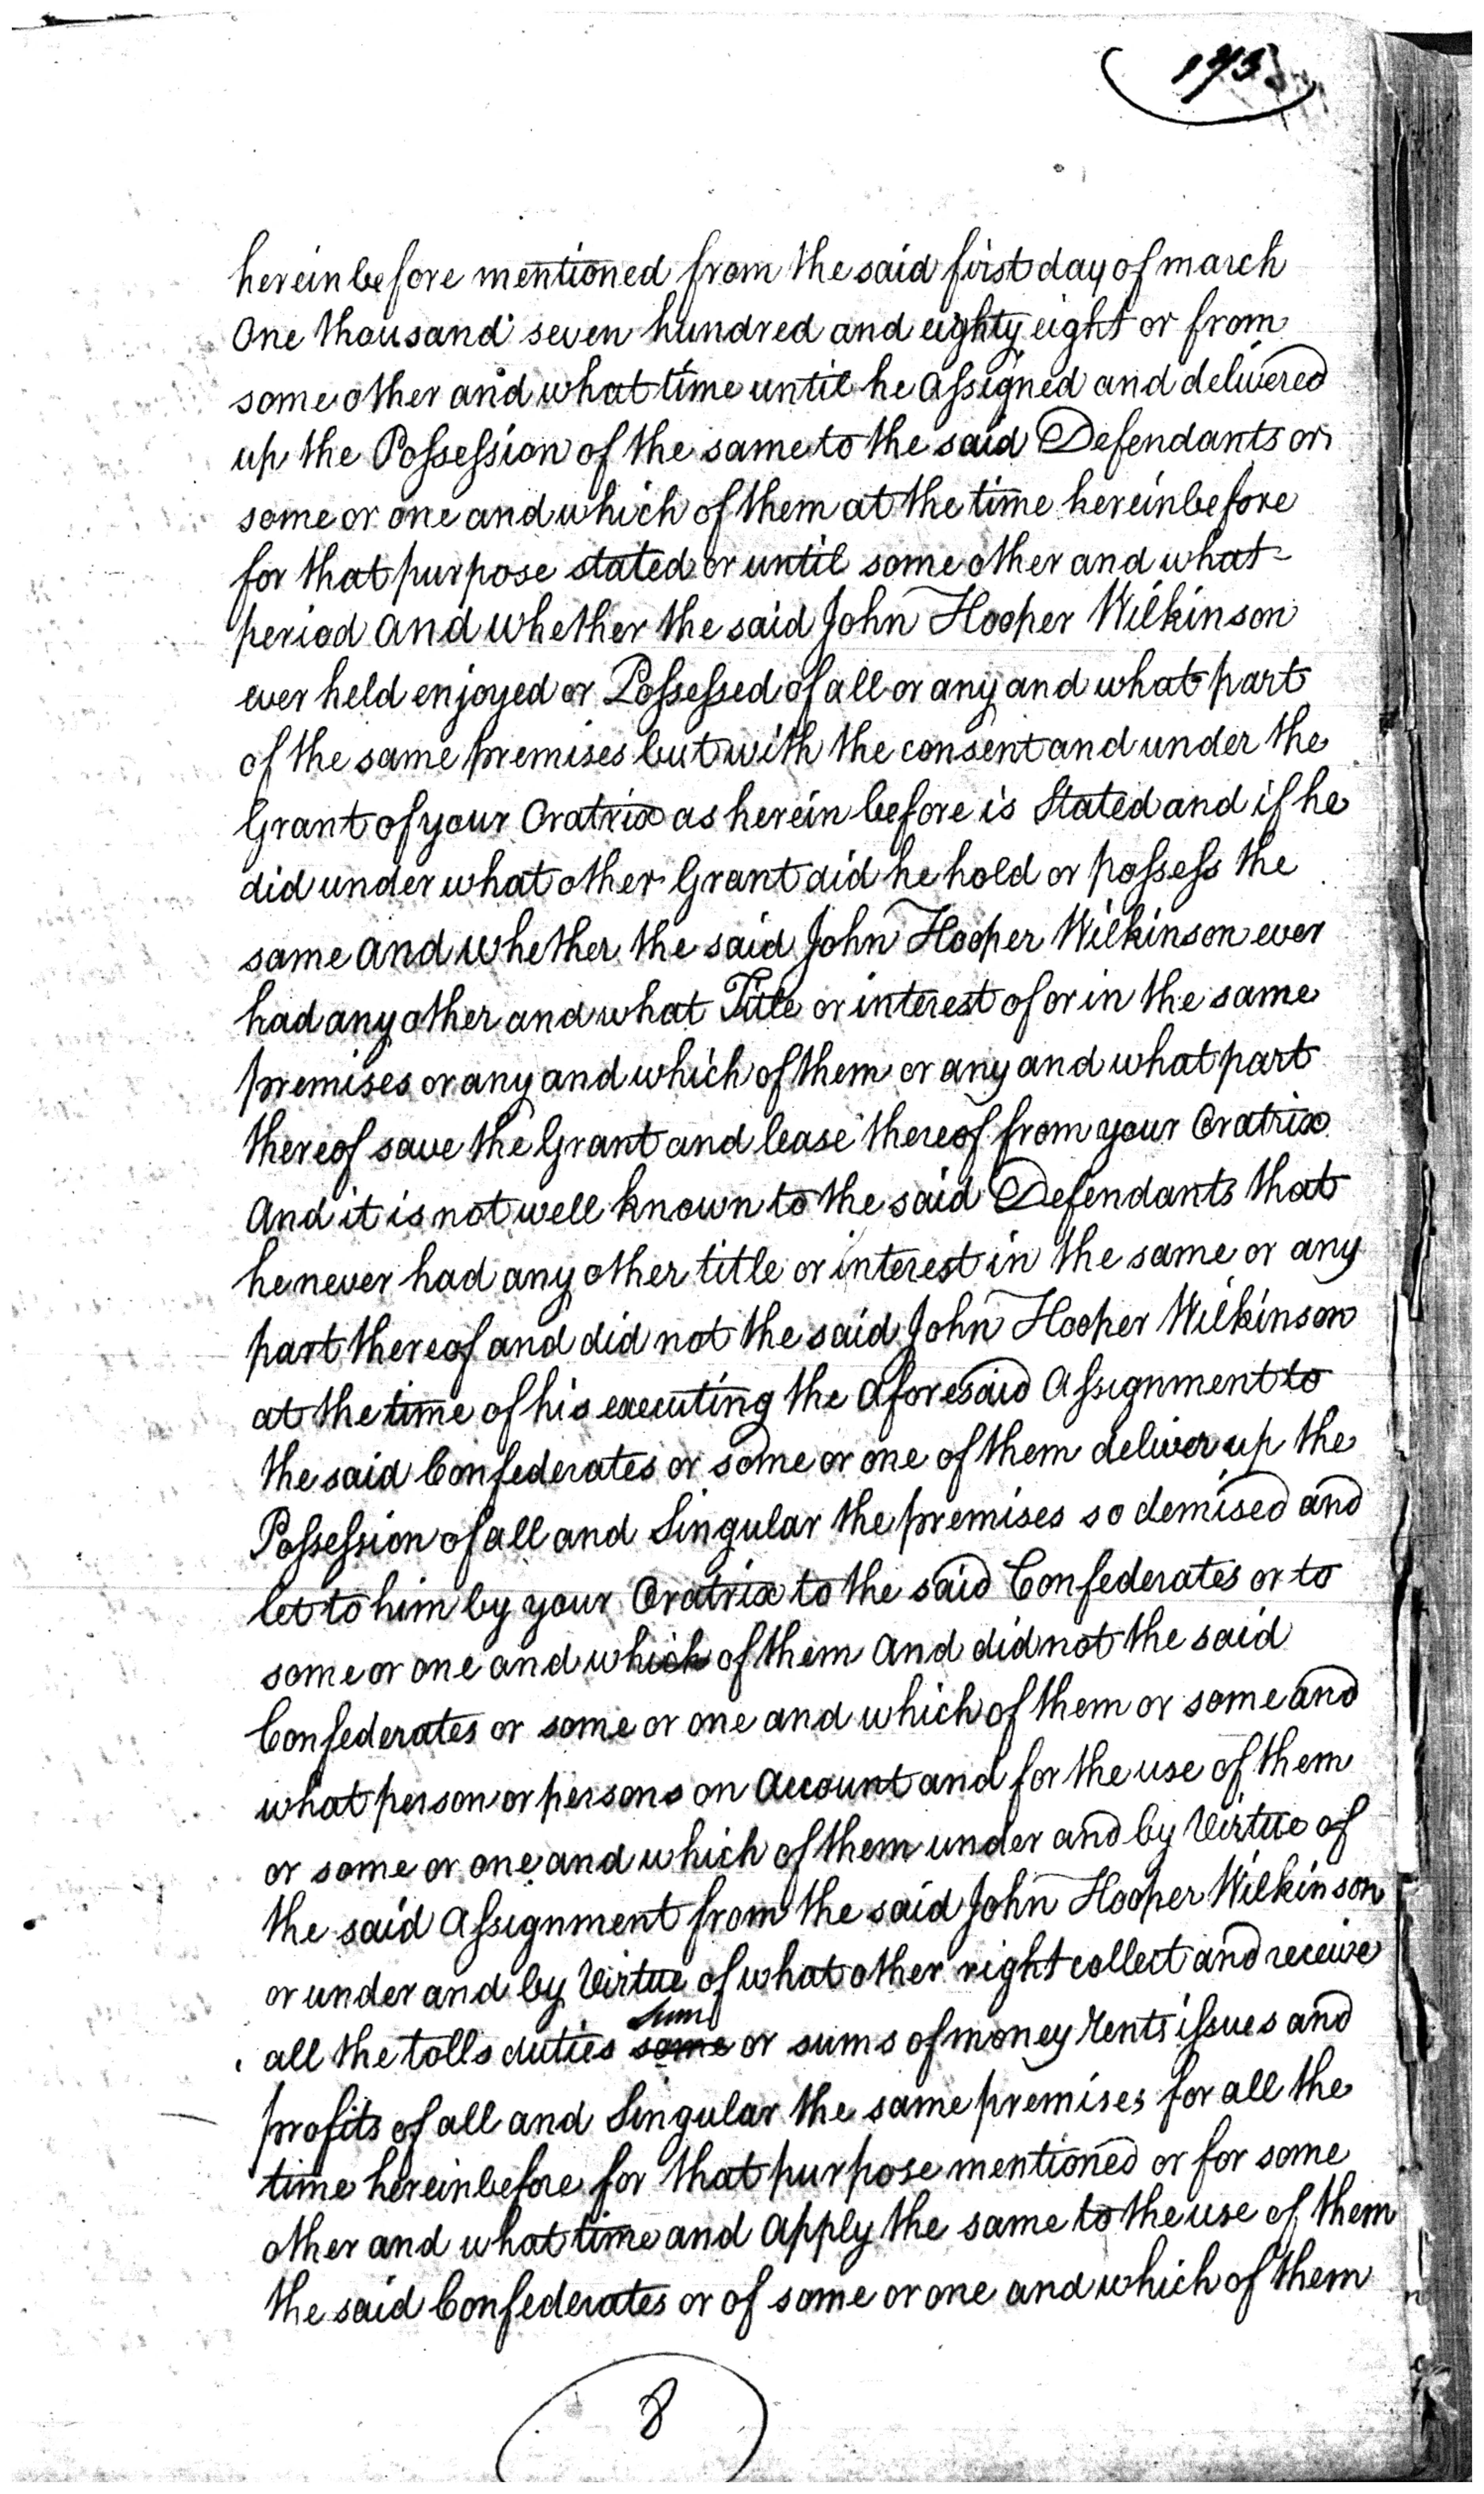 173
hereinbefore mentioned from the said first day of march
One thousand seven hundred and eighty eight or from
some other and what time until he Assigned and delivered
up the Possession of the same to the said Defendants or
some or one and which of them at the time hereinbefore
for that purpose stated or until some other and what
period and whether the said John Hooper Wilkinson
ever held enjoyed or Possessed of all or any and what part
of the same premises but with the consent and under the
Grant of your Oratrix as herein before is Stated and if he
did under what other Grant did he hold or possess the
same and whether the said John Hooper Wilkinson ever
had any other and what Title or interest of or in the same
premises or any and which of them or any and what part
thereof save the Grant and lease thereof from your Oratrix
And it is not well known to the said Defendants that
he never had any other title or interest in the same or any
part thereof and did not the said John Hooper Wilkinson
at the time of his executing the Aforesaid Assignment to
the said Confederates or some or one of them deliver up the
Possession of all and Singular the premises so demised and
let to him by your Oratrix to the said Confederates or to
some or one and which of them And did not the said
Confederates or some or one and which of them or some and
what person or persons on Account and for the use of them
or some or one and which of them under and by Virtue of
the said Assignment from the said John Hooper Wilkinson
or under and by Virtue of what other right collect and receive
sum
all the tolls duties some or sums of money Rents issues and
profits of all and Singular the same premises for all the
time hereinbefore for that purpose mentioned or for some
other and what time and Apply the same to the use of them
the said Confederates or of some or one and which of them
8